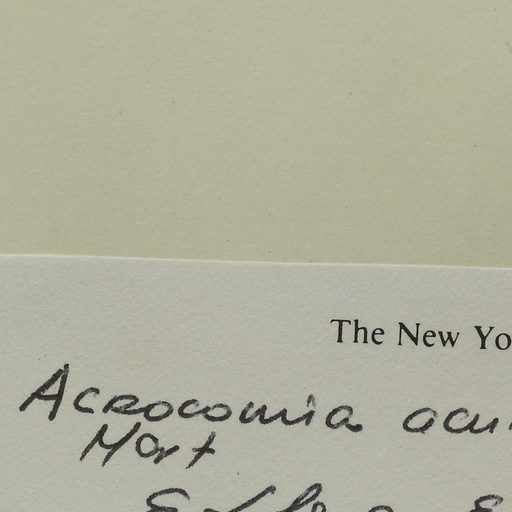 The New Yo
Acrocomia acu
Mart